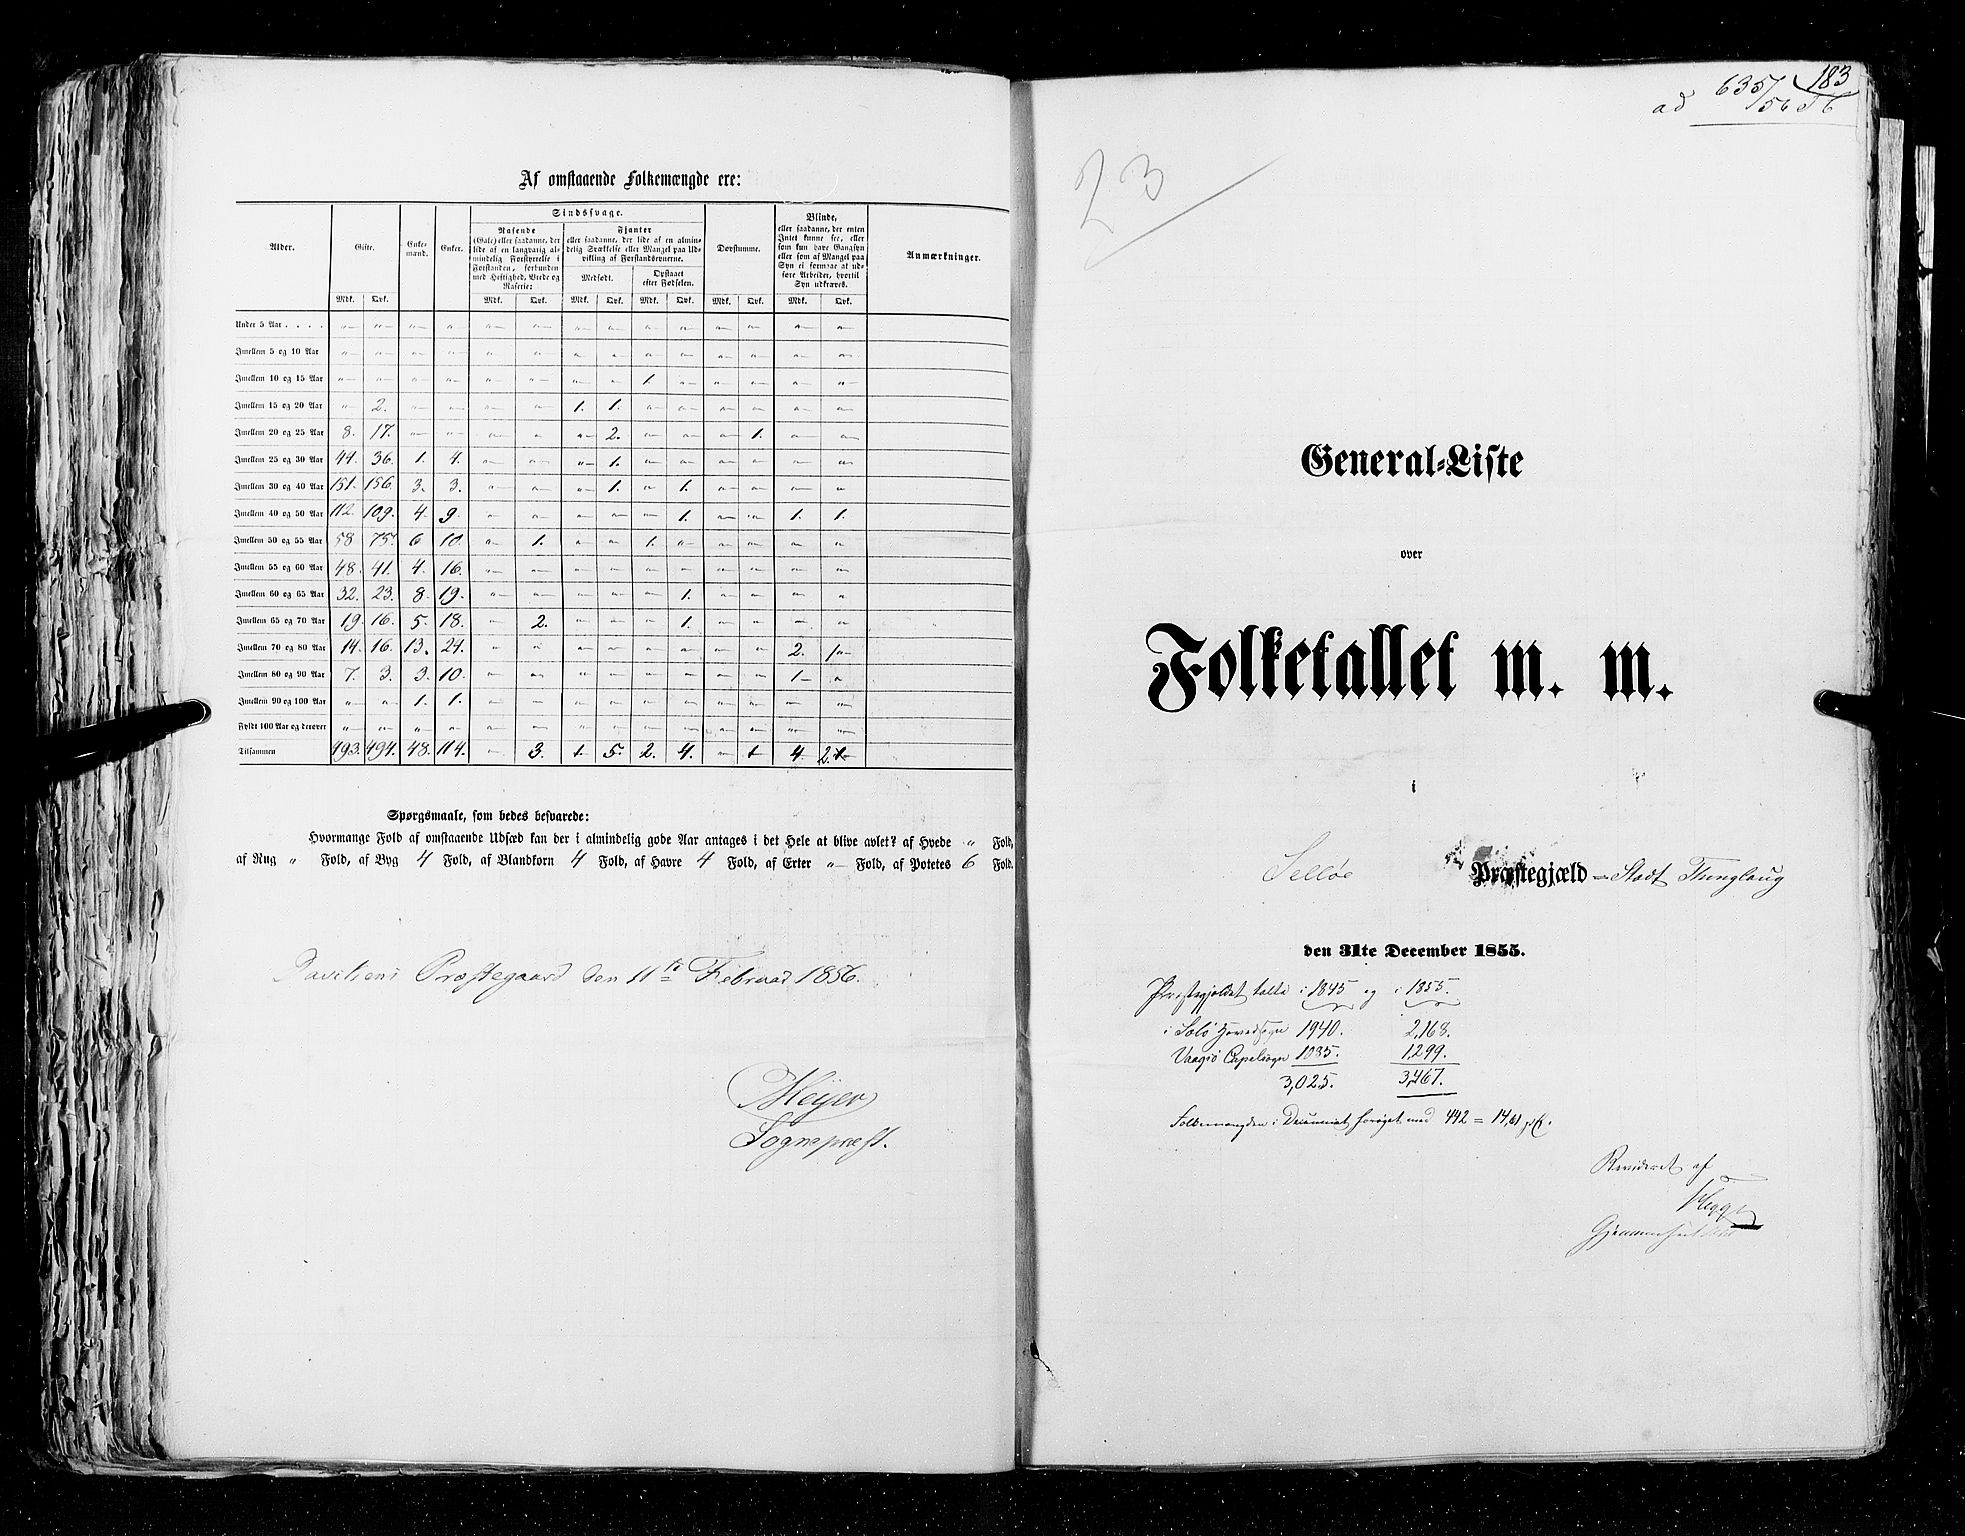 Af omstaaende Folkemængde ere:
Alder. Gifte. Enke-mænd. Enker. Sindssvage. Døvstumme. Blinde, eller saadanne, der enten Intet kunne see, eller som kun have Gangsyn eller som af Mangel paa Syn ei formaae at udføre Arbeider, hvortil Syn udkræves. Anmærkninger.
Rasende (Gale) eller saadanne, der lide af en langvarig almindelig Forstyrrelse i Forstanden, forbunden med Heftighed, Vrede og Raserie:
Fjanter eller saadanne, der lide af en almindelig Svækkelse eller Mangel paa Udvikling af Forstandsevnerne.
Medfødt. Opstaaet efter Fødselen.
Mdk. Qvk. Mdk. Qvk. Mdk. Qvk. Mdk. Qvk. Mdk. Qvk. Mdk. Qvk.
Under 5 Aar . . . .
Imellem 5 og 10 Aar
Imellem 10 og 15 Aar 1.
Imellem 15 og 20 Aar 2. 1. 1.
Imellem 20 og 25 Aar 8. 17. 2. 1.
Imellem 25 og 30 Aar 44. 36. 1. 4. 1.
Imellem 30 og 40 Aar 151. 156. 3. 3. 1. 1.
Imellem 40 og 50 Aar 112. 109. 4. 9. 1. 1. 1.
Imellem 50 og 55 Aar 58 75. 6 10. 1. 1.
Imellem 55 og 60 Aar 48. 41. 4. 16.
Imellem 60 og 65 Aar 32. 23. 8. 19. 1.
Imellem 65 og 70 Aar 19. 16. 5. 18. 2. 1.
Imellem 70 og 80 Aar 14. 16. 13. 24. 2. 1
Imellem 80 og 90 Aar 7. 3. 3. 10. 1
Imellem 90 og 100 Aar 1. 1.
Fyldt 100 Aar og derover
Tilsammen 493. 494. 48. 114. 3. 1. 5. 2. 4. 1 4. 2.
Spørgsmaale, som bedes besvarede:
Hvormange Fold af omstaaende Udsæd kan der i almindelig gode Aar antages i det Hele at blive avlet? af Hvede " Fold,
af Rug " Fold, af Byg 4 Fold, af Blandkorn 4 Fold, af Havre 4 Fold, af Erter " Fold, af Potetes 6 Fold.
Præstegaard den 11te Februar 1856.
Meyer
Sognepræst.
183
ad 635/56
23
General-Liste
over
Folketallet m. m.
i
Selløe Præstegjæld - Stadt Thinglaug
den 31te December 1855.
Præstegjeldet talte i 1845 og i 1855.
i Selø Hovedsogn 1940. 2,168.
Vaagsø Capelsogn 1085. 1,299.
3,025. 3,467.
Folkemængden i Decenniet forøget med 442 = 14,61 pCt.
Revideret af
Gjennemseet